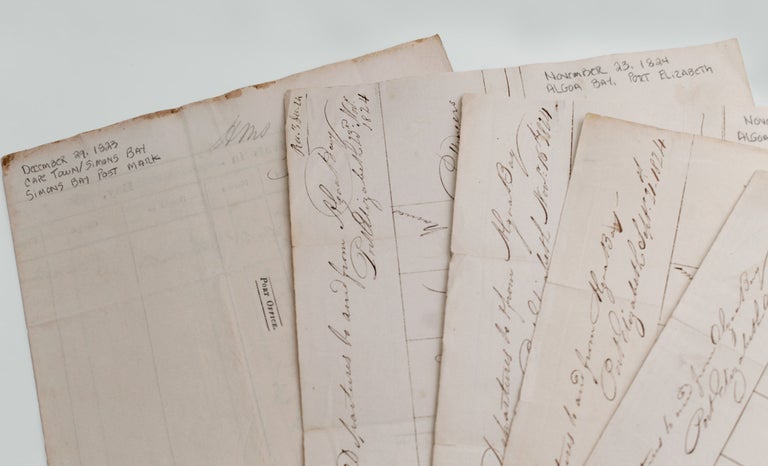 DECEMBER 29, 1823
CAPE TOWN/SIMONS BAY
SIMONS BAY POST MARK
POST OFFICE.
NOVEMBER 23, 1824
ALGOA BAY, PORT ELIZABETH
Departures to and from Algoa Bay
Port Elizabeth 23rd Novr
1824
Departures to & from Algoa Bay
and from Algoa Bay
Port Elizabeth
1824
to and from Algoa Bay
Port Elizabeth
NOV
ALGOA